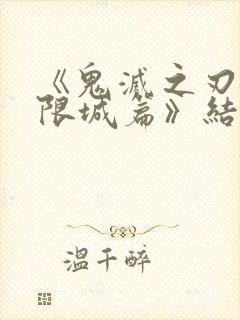 《鬼滅之刃
限城篇》結
溫千醉